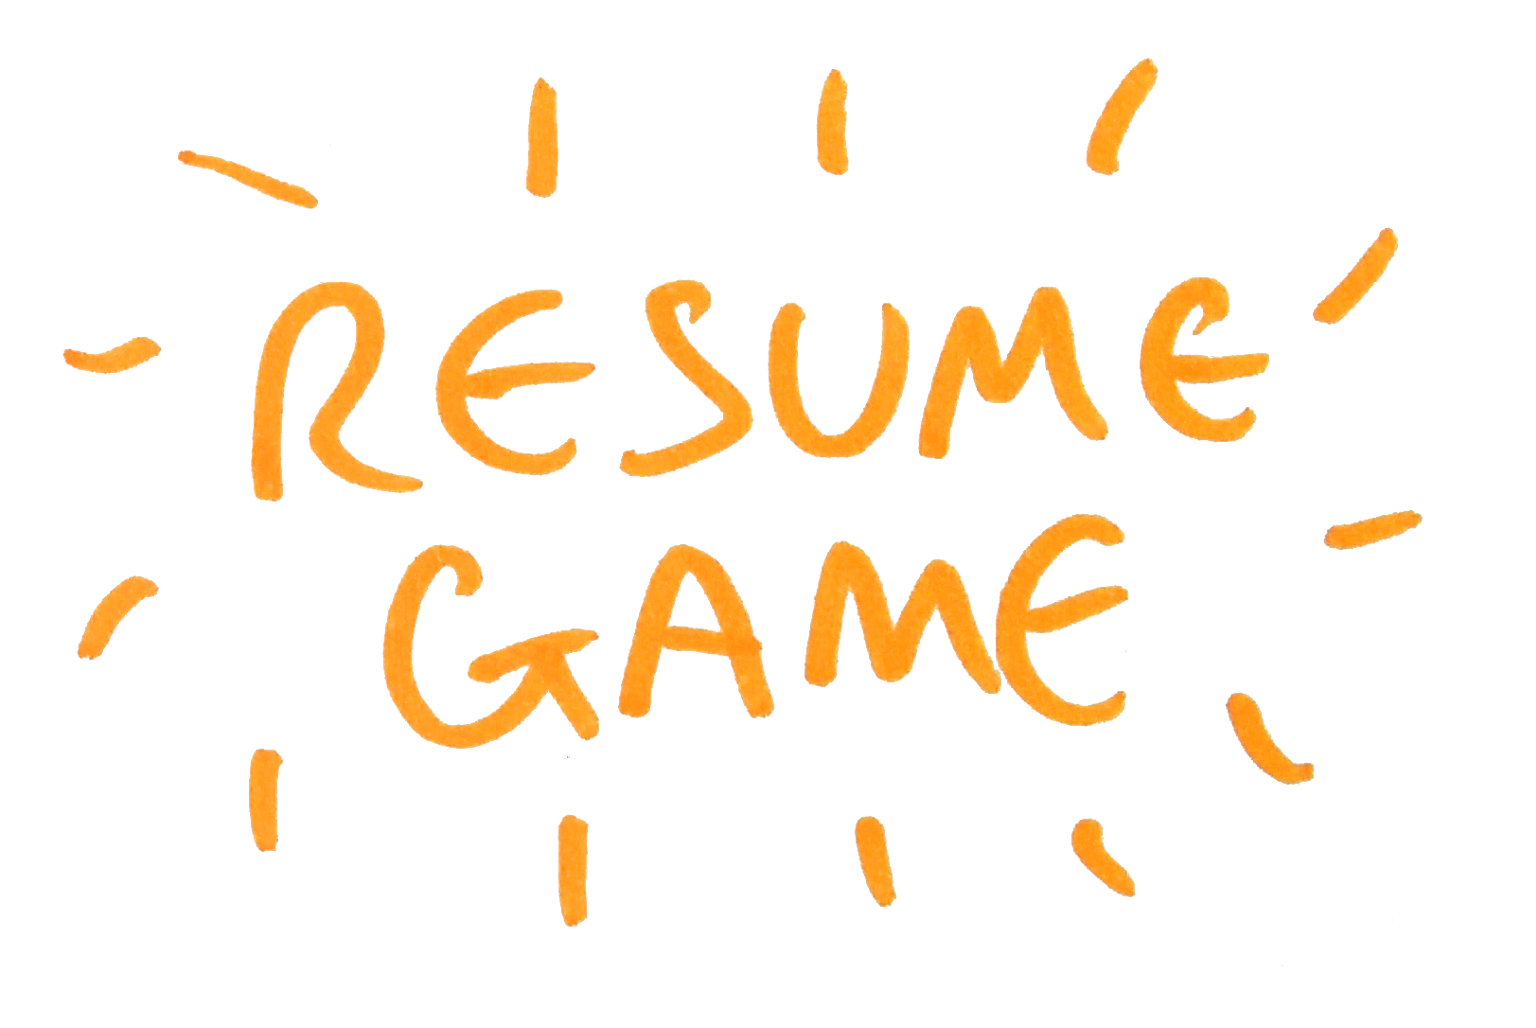 RESUME
GAME